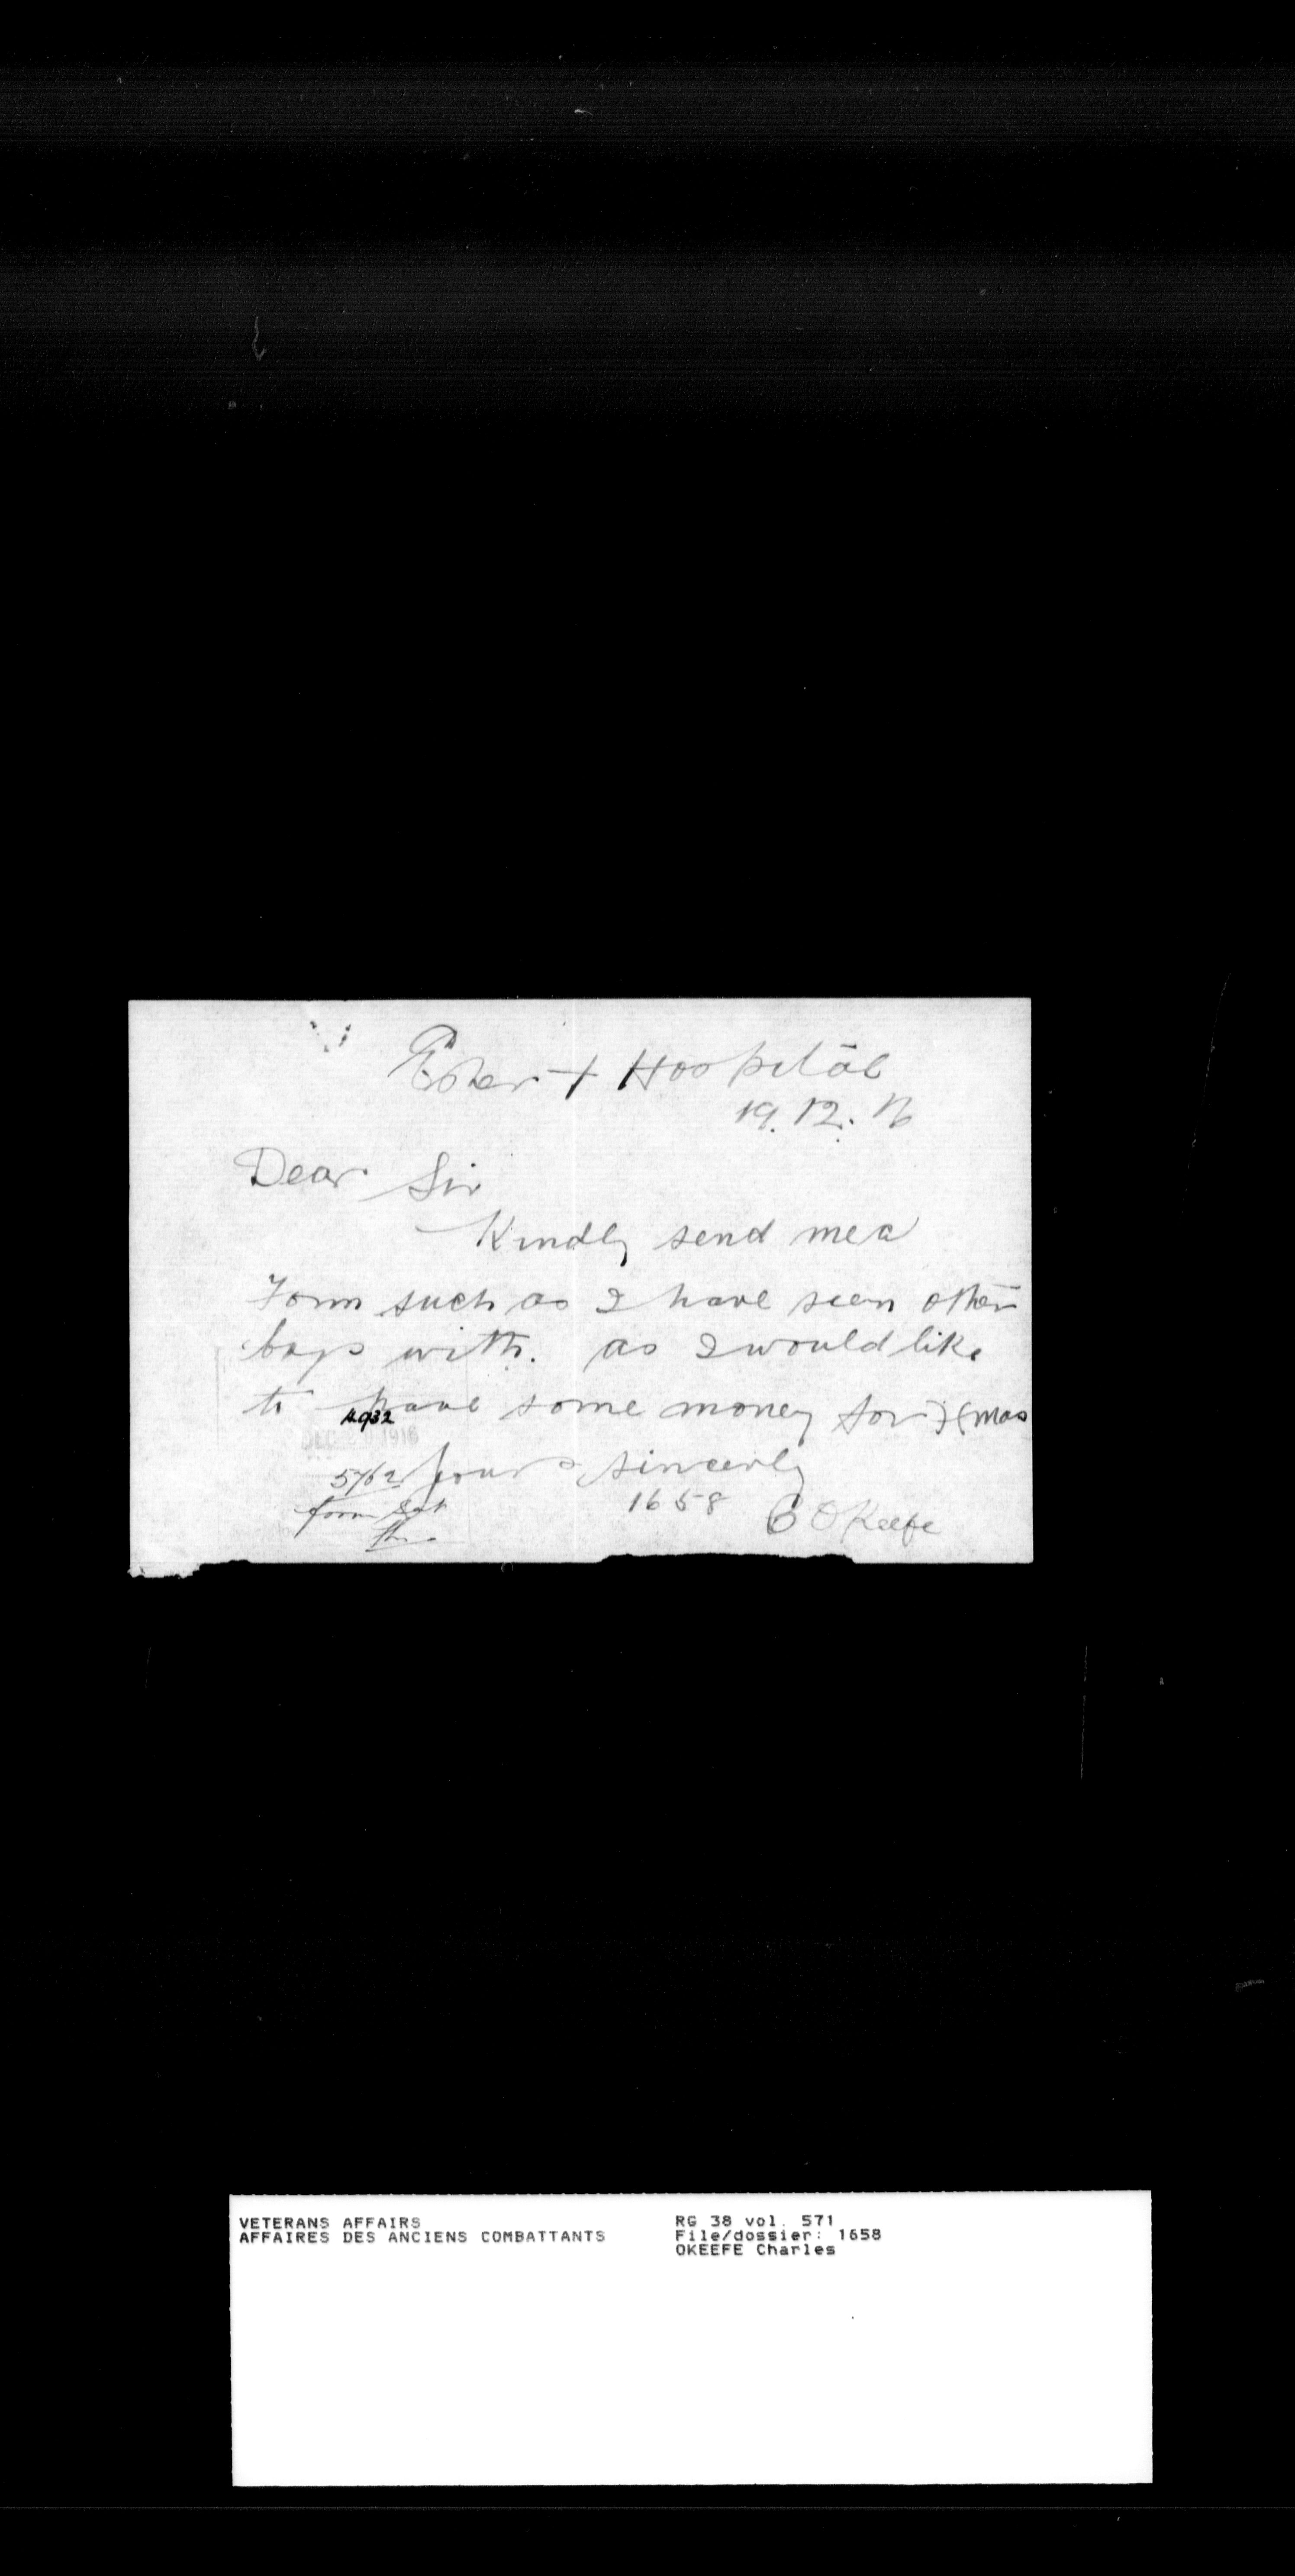 Escourt Hospital
19.12.16
Dear Sir
Kindly send me a
Form such as I have seen other
boys with. as I would like
to have some money for Xmas
4932
DEC 1916
5762 yours sincerly
form sent
1658 C OKeefe
VETERANS AFFAIRS
AFFAIRES DES ANCIENS COMBATTANTS
RG 38 vol. 571
File/dossier: 1658
OKEEFE Charles